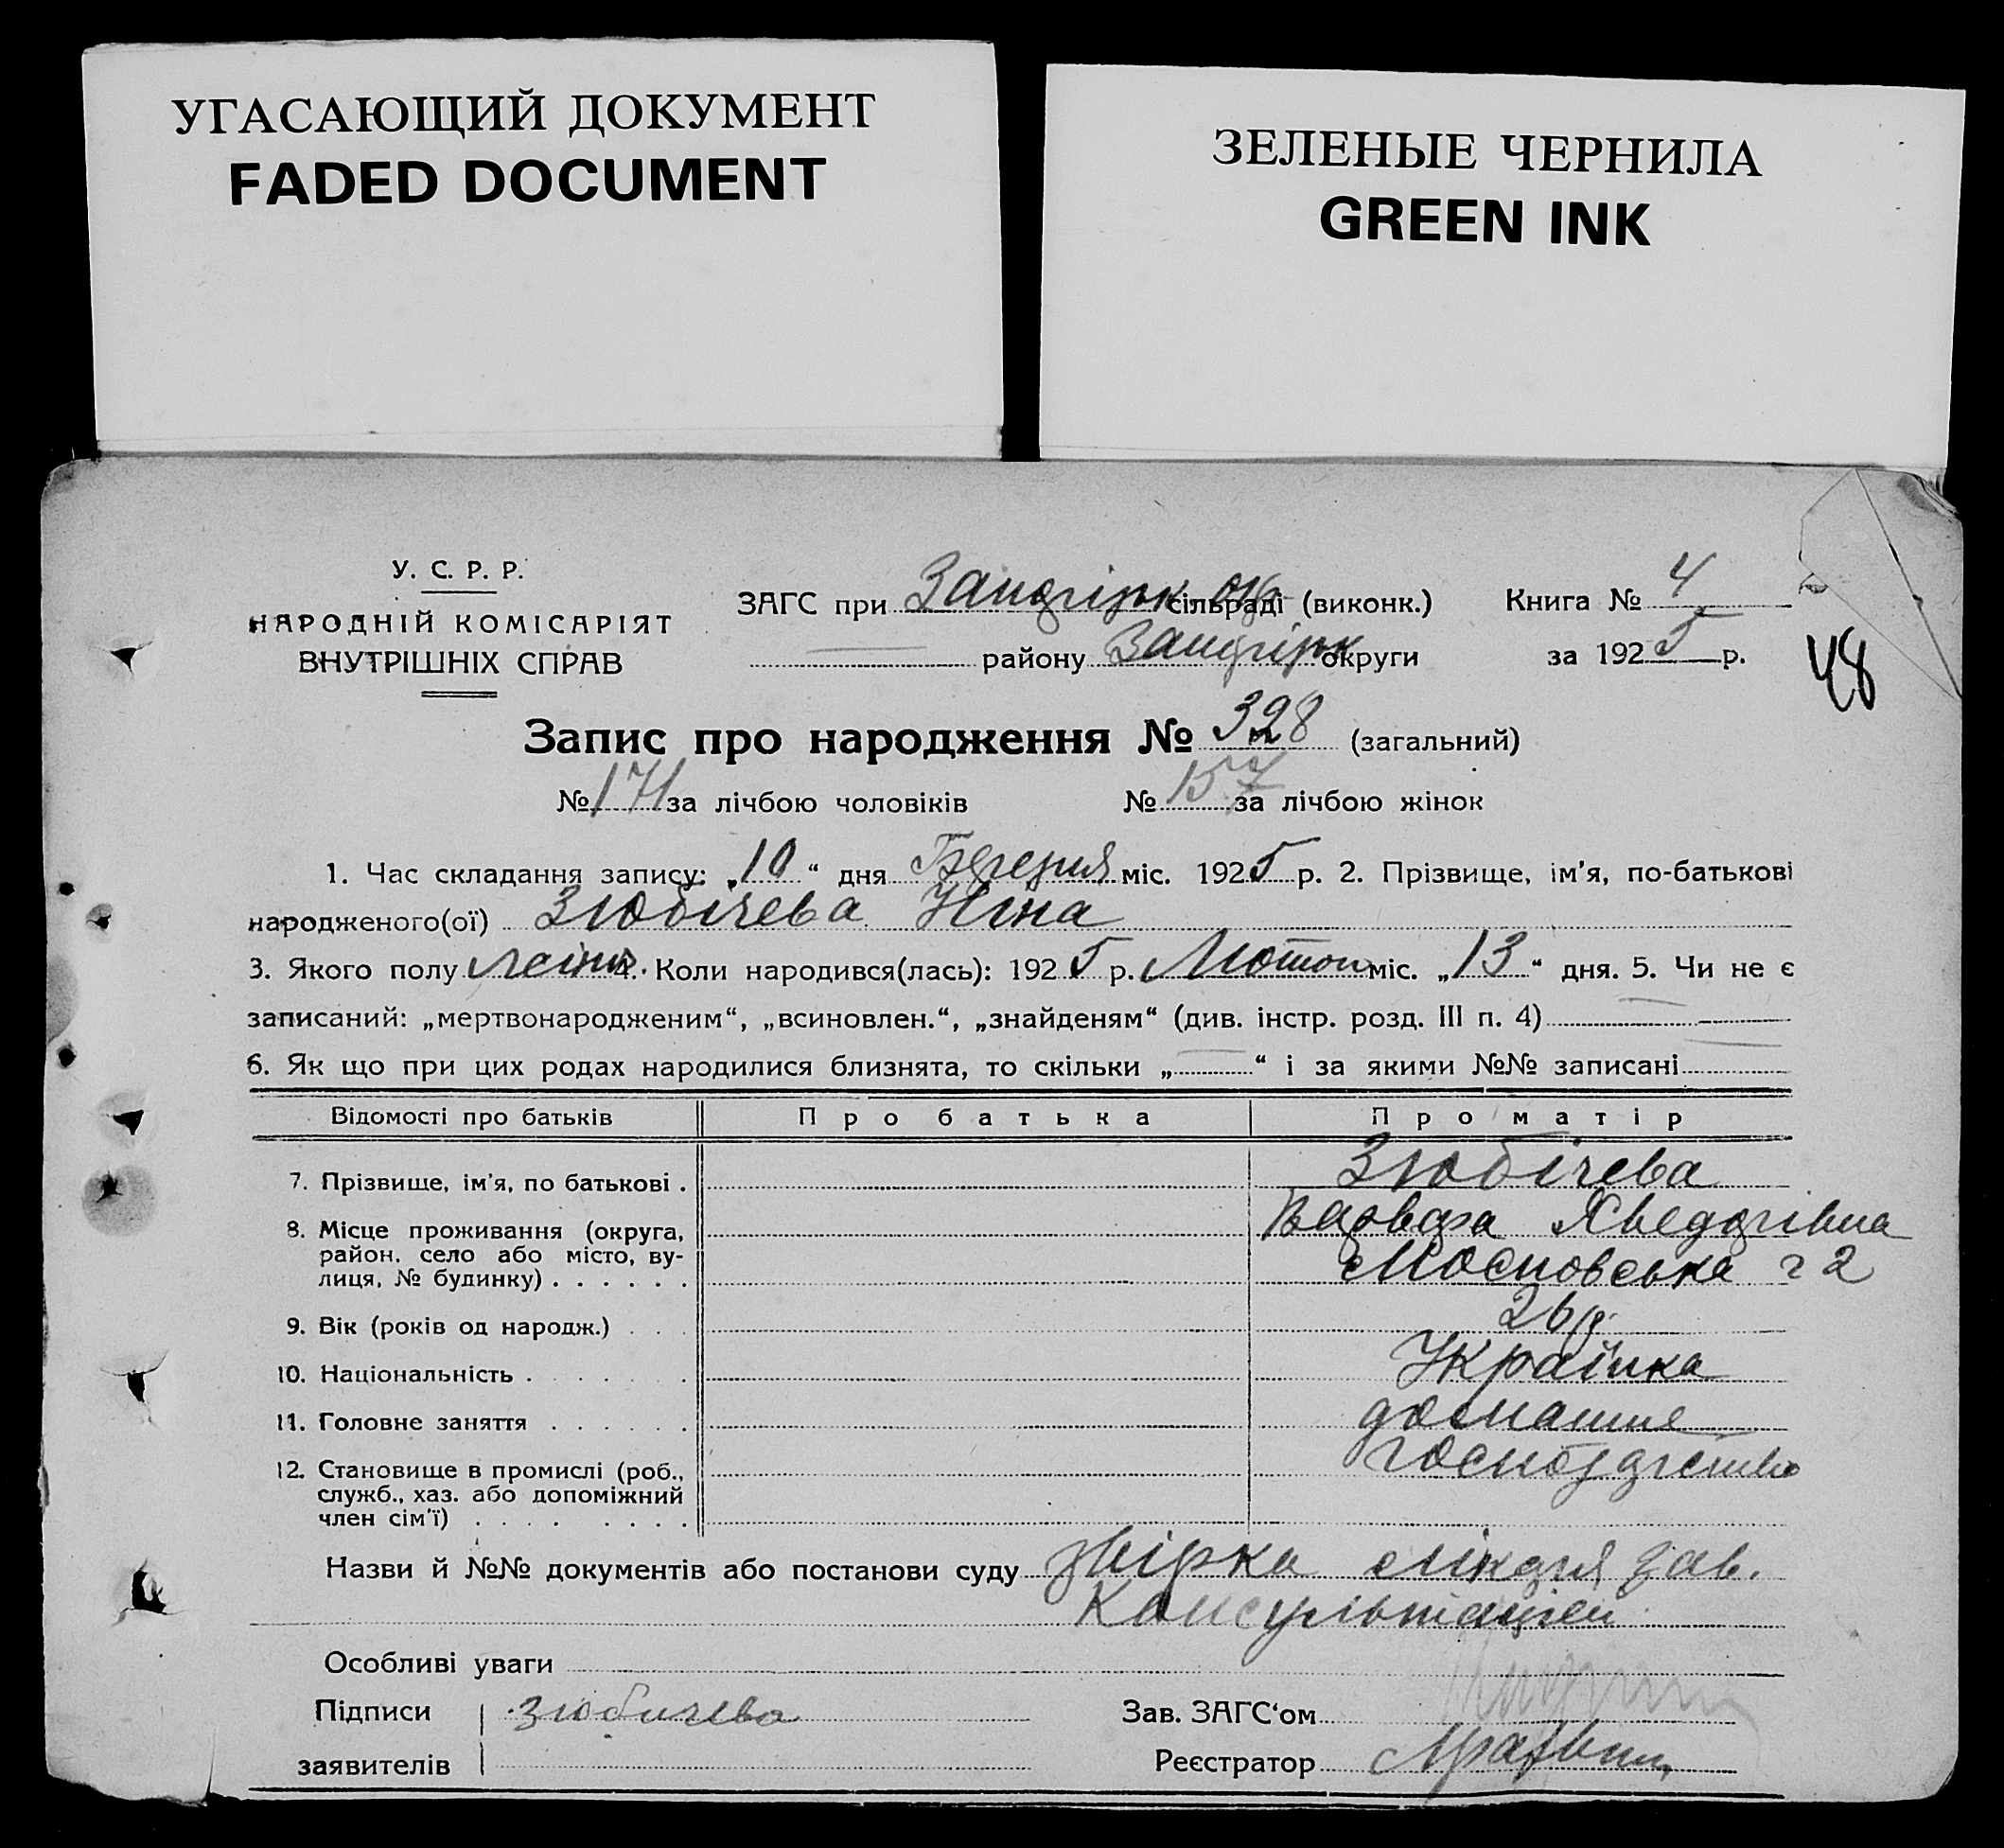 УГАСАЮЩИЙ ДОКУМЕНТ
FADED DOCUMENT
ЗЕЛЕНЫЕ ЧЕРНИЛА
GREEN INK
У. С. Р. Р.
НАРОДНІЙ КОМІСАРІЯТ
ВНУТРІШНІХ СПРАВ
ЗАГС при сільраді (виконк.)
району округи
Книга № 4
за 1925 р.
48
Запис про народження № 328 (загальний)
№ 171 за лічбою чоловіків № 157 за лічбою жінок
1. Час складання запису: „10“ дня Березня міс. 1925 р. 2. Прізвище, ім'я, по-батькові
народженого(ої) Зюбічева Ніна
3. Якого полу 4. Коли народився(лась): 1925 р. Лютого міс. „13“ дня. 5. Чи не є
записаний: „мертвонародженим“, „всиновлен.“, „знайденям“ (див. інстр. розд. III п. 4)
6. Як що при цих родах народилися близнята, то скільки „—“ і за якими №№ записані
Відомості про батьків Про батька Про матір
7. Прізвище, ім'я, по батькові . Зюбічева
Варвара Хведорівна
8. Місце проживання (округа,
район, село або місто, ву-
лиця, № будинку) . . . . . . Московська ч 2
9. Вік (років од народж.) . . . 26 р.
10. Національність . . . . . . . Українка
11. Головне заняття . . . . . . домашнє
господарство
12. Становище в промислі (роб.,
служб., хаз. або допоміжний
член сім'ї) . . . . . . . .
Назви й №№ документів або постанови суду лікаря зав.
Консультацією
Особливі уваги
Підписи зюбичева Зав. ЗАГС‘ом
заявителів Реєстратор